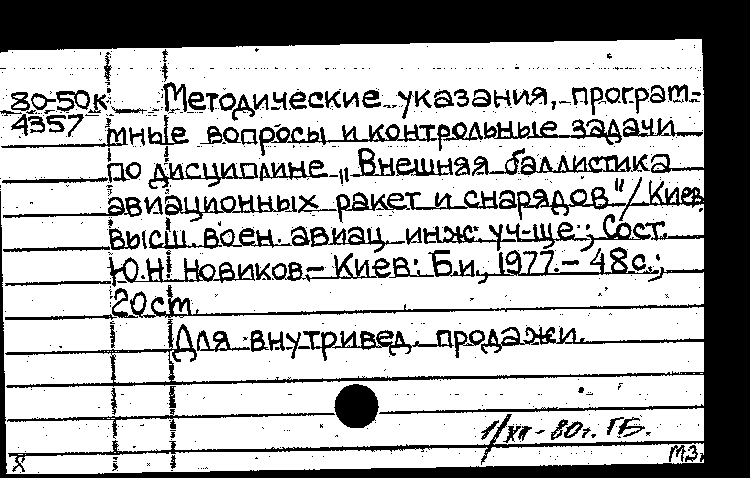 80-50к Методические указания, програм-
4357 тные вопросы и контрольные задачи
по дисциплине „Внешняя баллистика
авиационных ракет и снарядов"/Киев.
высш. воен. авиац. инж. уч-ще; Сост.
Ю.Н. Новиков.– Киев: Б.и., 1977.– 48с.;
20cm.
Для внутривед. продажи.
1/XII-80г. ГБ.
X МЗ.